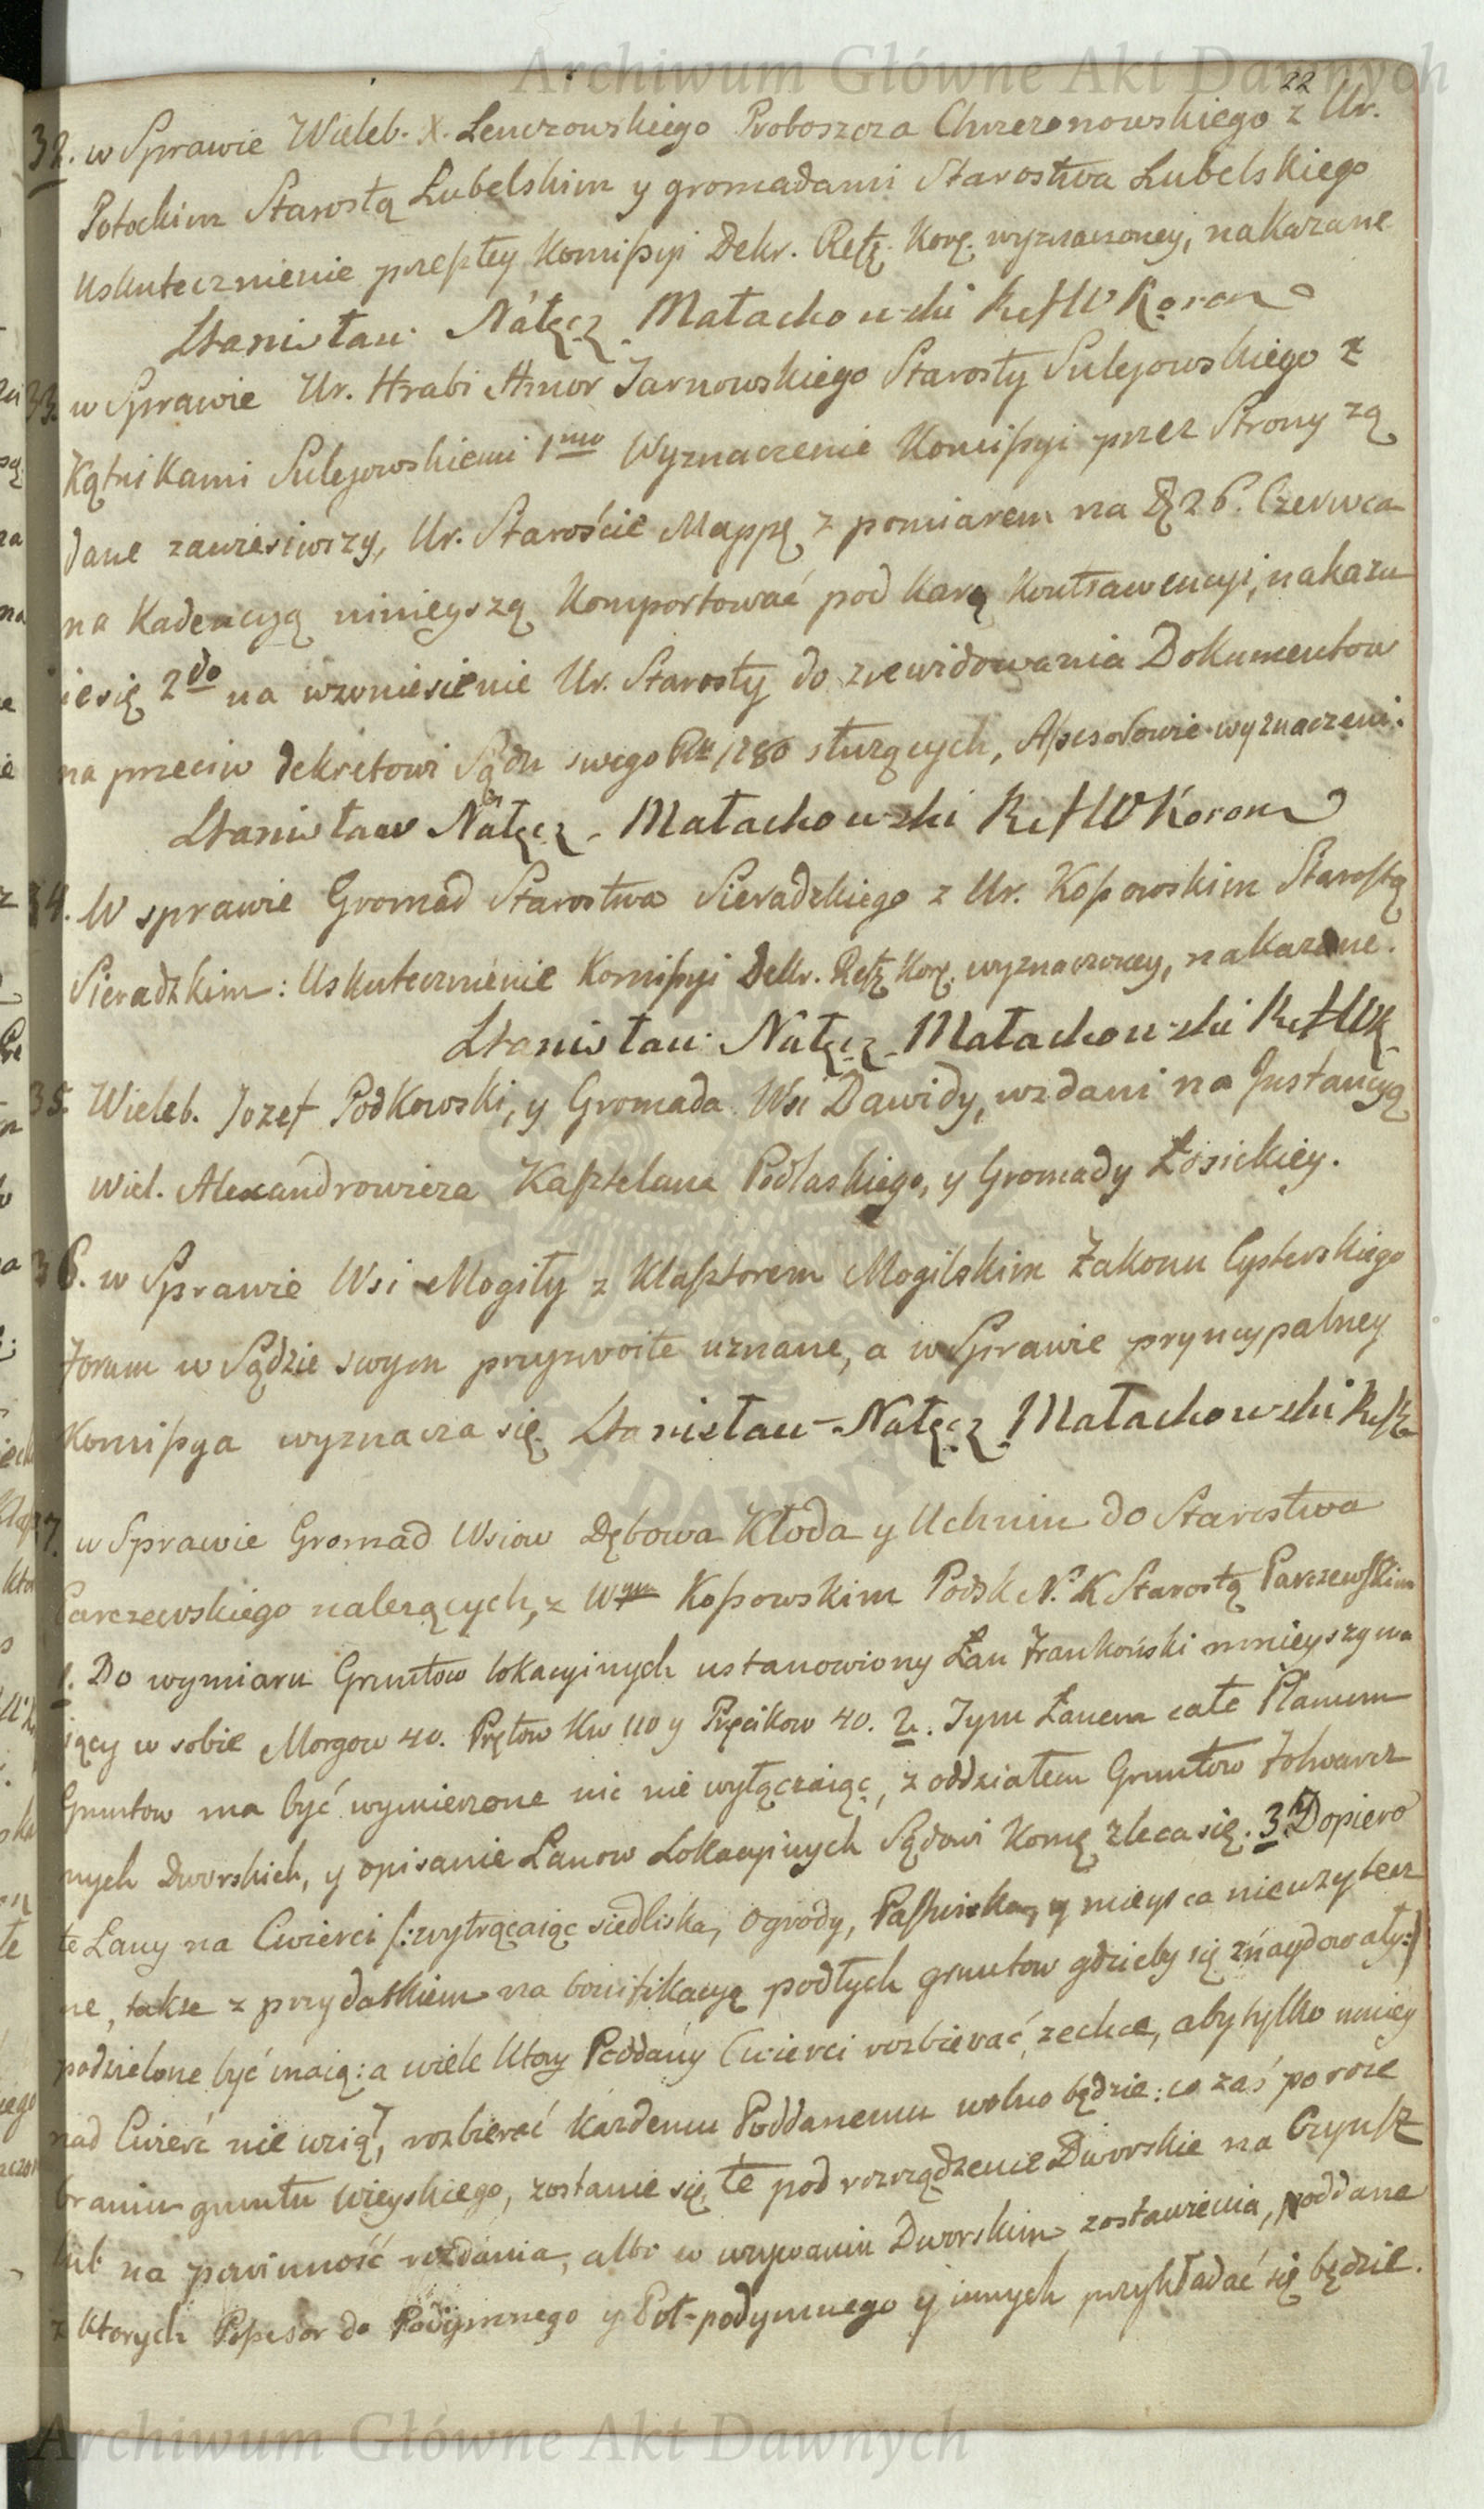 Archiwum Główne Akt Dawnych
22
32. w Sprawie Wieleb. X. Lenczowskiego Proboszcza Chrzczonowskiego z Ur.
Potockim Starostą Lubelskim y gromadami Starostwa Lubelskiego
Uskutecznienie przeszłey Komissyi Dekr. Reff. Kor. wyznaczoney, nakazane
Stanisław Nałęcz Małachowski RefWKoron
33. w Sprawie Ur. Hrabi Amor Tarnowskiego Starosty Sulejowskiego z
Kątnikami Sulejowskiemi 1mo Wyznaczenie Komissyi przez Strony zą
dane zawiesiwszy, Ur. Staroście Mappę z pomiarem na 26. Czerwca
na Kadencyą ninieyszą Komportować pod karą Kontrawencyi, nakazu
ie się 2do na wzniesienie Ur. Starosty do zrewidowania Dokumentow
na przeciw dekretowi Sądu swego Rku 1780 służących, Assessorowie wyznaczeni.
Stanisław Nałęcz Małachowski RefWKoron
34. W sprawie Gromad Starostwa Sieradzkiego z Ur. Kossowskim Starostą
Sieradzkim: Uskutecznienie Komissyi Dekr. Reff. Kor. wyznaczoney, nakazane.
Stanisław Nałęcz Małachowski RefWK
35. Wieleb. Jozef Podkowski, y Gromada Wsi Dawidy, wzdani na Instancyą
Wiel. Alexandrowicza Kasztelana Podlaskiego, y Gromady Łosickiey.
36. w Sprawie Wsi Mogiły z Klasztorem Mogilskim Zakonu Cysterskiego
Forum w Sądzie swym przyzwoite uznane, a w Sprawie pryncypalney
Komissya wyznacza się. Stanisław Nałęcz Małachowski Ref
37. w Sprawie Gromad Wsiow Dębowa Kłoda y Uchnin do Starostwa
Parczewskiego należących, z Wym Kossowskim Podsk N. K Starostą Parczewskim
1. Do wymiaru Gruntow lokacyinych ustanowiony Łan Frankoński mnieyszy ma
iący w sobie Morgow 40. Prętow Kw 110 y Pręcikow 40. 2. Tym Łanem całe Planum
Gruntow ma być wymierzone nic nie wyłączaiąc, z oddziałem Gruntow Folwarcz
nych Dworskich, y opisanie Łanow Lokacyinych Sądowi Kom. zleca się. 3. Dopiero
te Łany na Cwierci /: wytrącaiąc siedliska, ogrody, Pastwiska, y mieysca nieużytecz
ne, także z przydatkiem na bonifikacyą podłych gruntow gdzieby się znaydowały :/
podzielone być maią: a wiele ktory Poddany Cwierci rozbierać zechce, aby tylko mniey
nad Cwierć nie wziął, rozbierać każdemu Poddanemu wolno będzie: co zaś po roze
braniu gruntu wieyskiego, zostanie się, te pod rozrządzenie Dworskie na Czynsz
lub na powinność rozdania, albo w używaniu Dworskim zostawienia, poddane
z ktorych Possesor do Podymnego y Poł-podymnego y innych przykładać się będzie.
Archiwum Główne Akt Dawnych